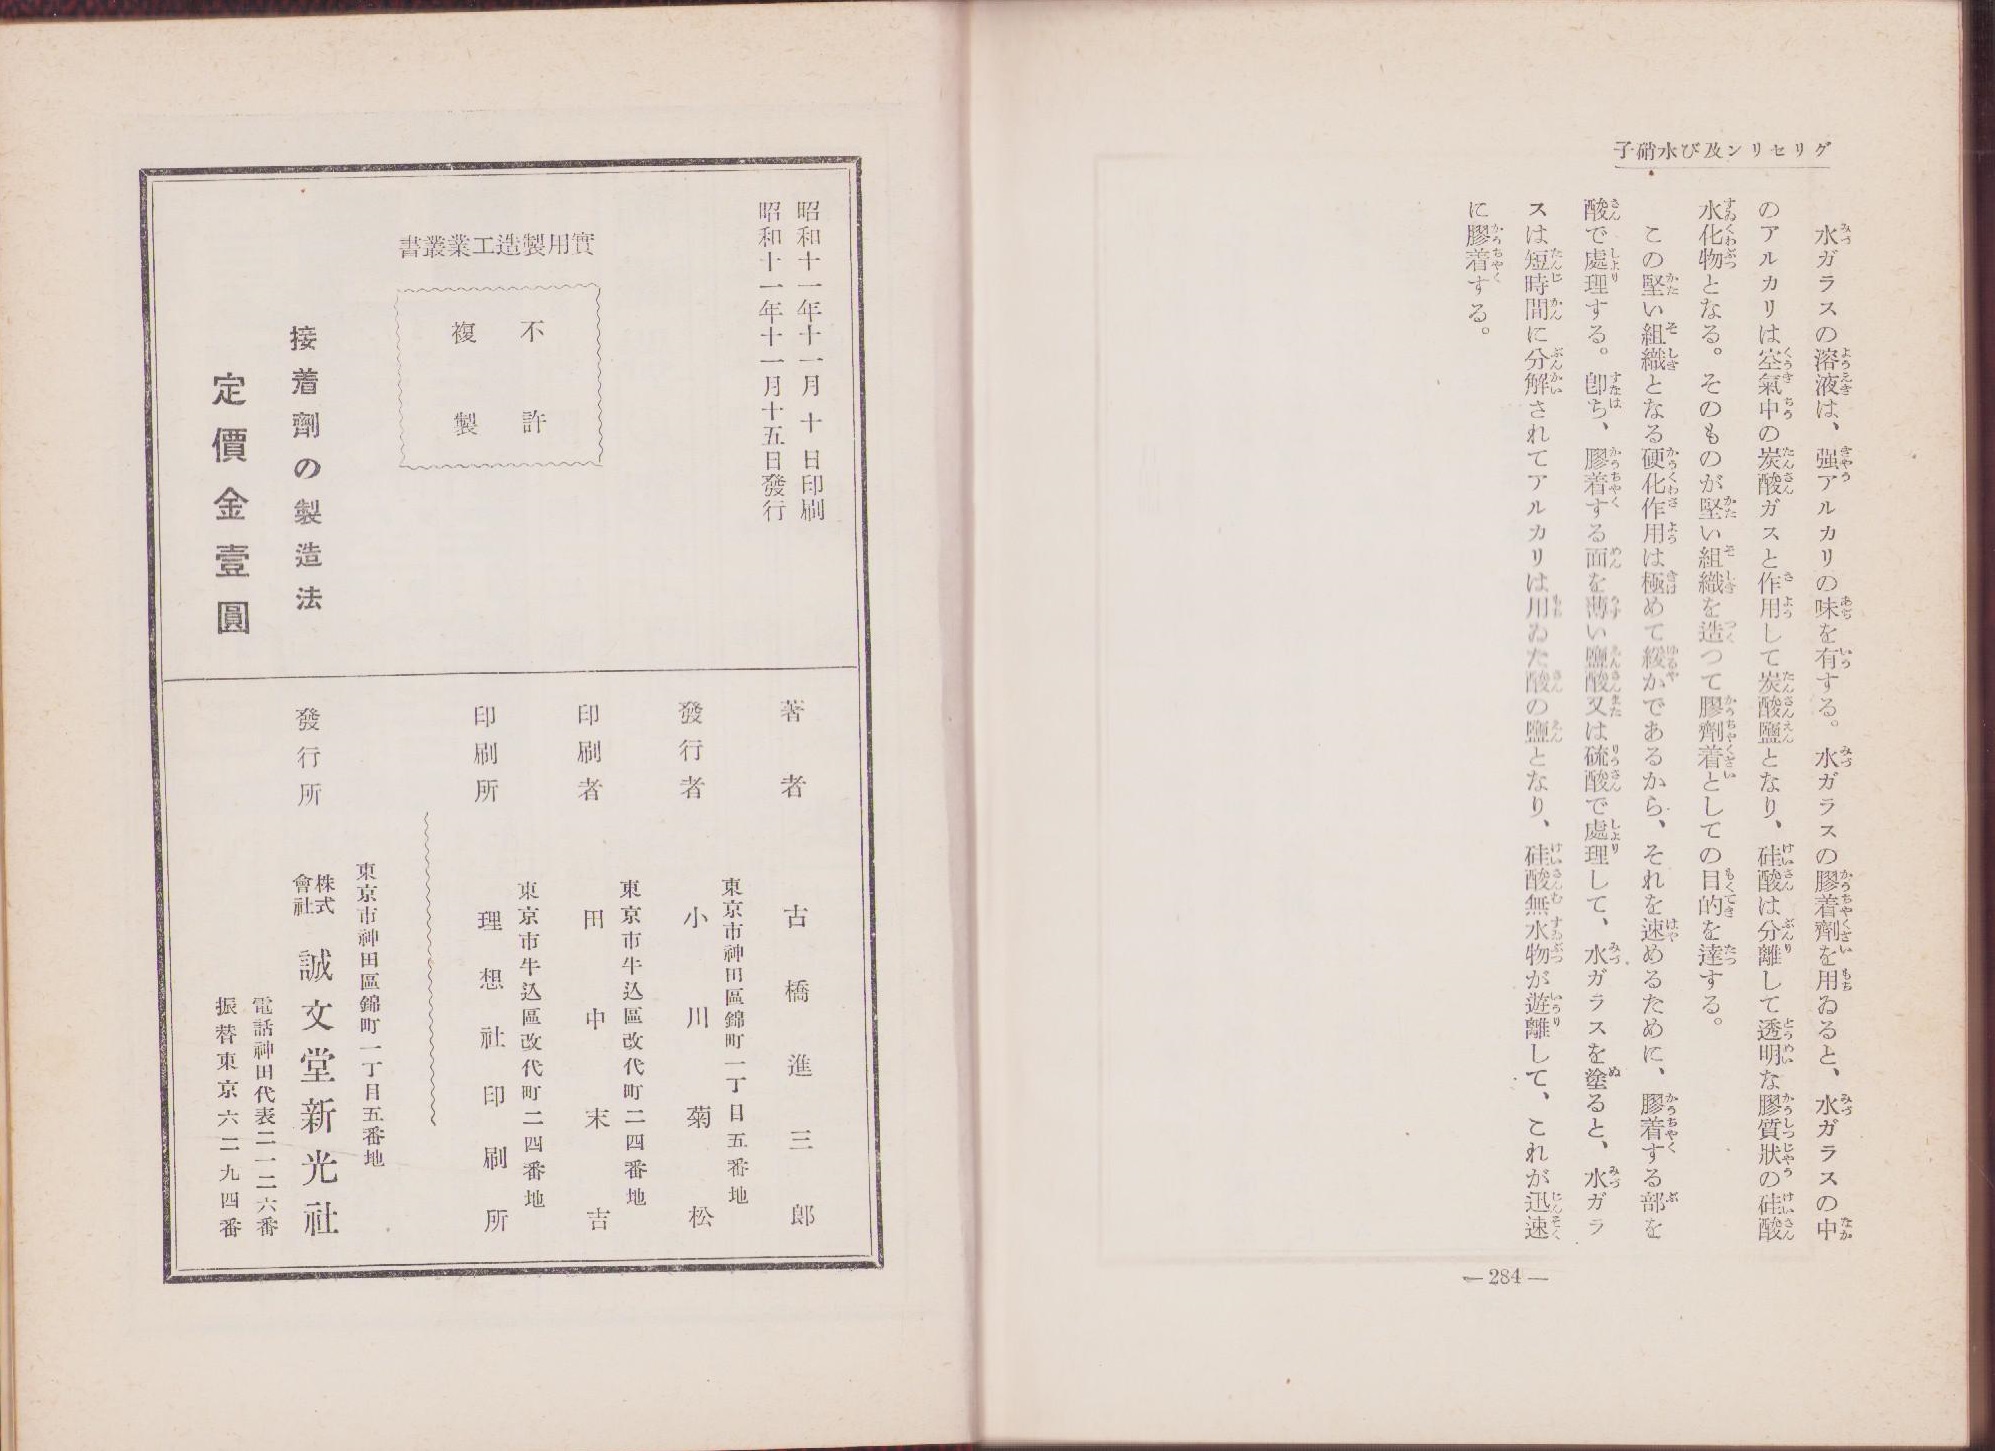 グリセリン及び水硝子
水ガラスの溶液は、强アルカリの味を有する。水ガラスの膠着劑を用ゐると、水ガラスの中
のアルカリは空氣中の炭酸ガスと作用して炭酸鹽となり、硅酸は分離して透明な膠質狀の硅酸
水化物となる。そのものが堅い組織を造つて膠劑着としての目的を達する。
この堅い組織となる硬化作用は極めて緩かであるから、それを速めるために、膠着する部を
酸で處理する。卽ち、膠着する面を薄い鹽酸又は硫酸で處理して、水ガラスを塗ると、水ガラ
スは短時間に分解されてアルカリは用ゐた酸の鹽となり、硅酸無水物が遊離して、これが迅速
に膠着する。
— 284 —
昭和十一年十一月十日印刷
昭和十一年十一月十五日發行
實用製造工業叢書
不許
複製
接着劑の製造法
定價金壹圓
著者 古橋進三郎
東京市神田區錦町一丁目五番地
發行者 小川菊松
東京市牛込區改代町二四番地
印刷者 田中末吉
東京市牛込區改代町二四番地
印刷所 理想社印刷所
東京市神田區錦町一丁目五番地
發行所 株式會社 誠文堂新光社
電話神田代表二一二六番
振替東京六二九四番